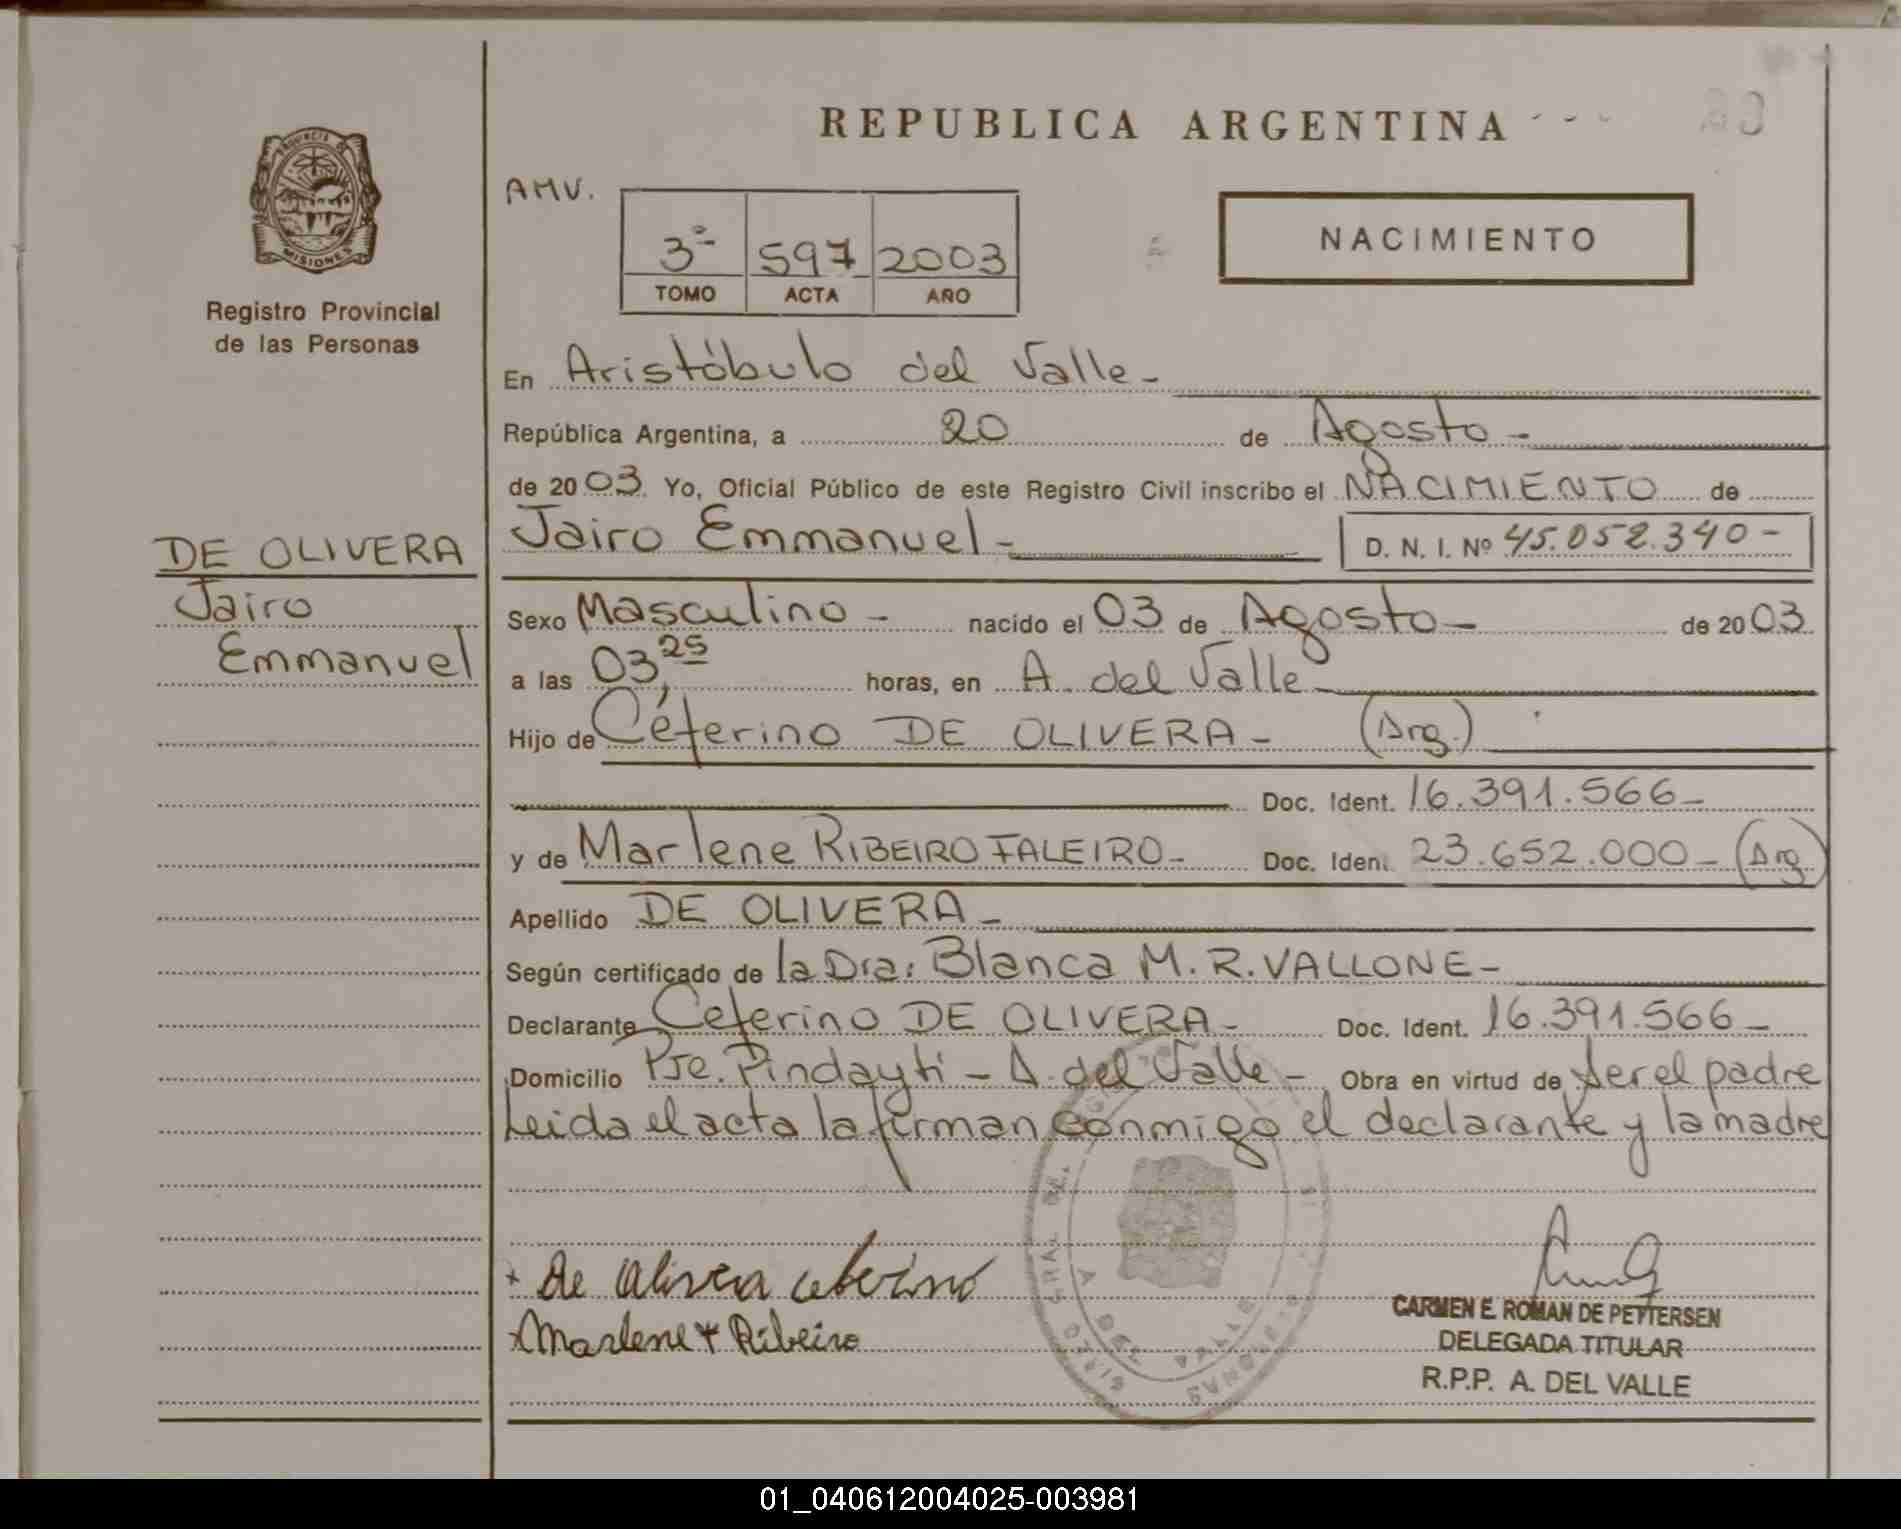 REPUBLICA ARGENTINA
PROVINCIA DE
MISIONES
Registro Provincial
de las Personas
AMV.
3º 597 2003
TOMO ACTA AÑO
NACIMIENTO
En Aristóbulo del Valle-
República Argentina, a 20 de Agosto-
de 2003 Yo, Oficial Público de este Registro Civil inscribo el NACIMIENTO de
DE OLIVERA
Jairo
Emmanuel
Jairo Emmanuel- D. N. I. Nº 45.052.340-
Sexo Masculino- nacido el 03 de Agosto- de 2003
a las 03,25 horas, en A. del Valle-
Hijo de Ceferino DE OLIVERA- (Arg.)
Doc. Ident. 16.391.566-
y de Marlene RIBEIRO FALEIRO- Doc. Ident. 23.652.000- (Arg
Apellido DE OLIVERA-
Según certificado de la Dra: Blanca M. R. VALLONE-
Declarante Ceferino DE OLIVERA- Doc. Ident. 16.391.566-
Domicilio Pje. Pindayti - A. del Valle- Obra en virtud de ser el padre
Leida el acta la firman conmigo el declarante y la madre
De Olivera Ceferino
Marlene Ribeiro
A DEL VALLE
CARMEN E. ROMAN DE PETTERSEN
DELEGADA TITULAR
R.P.P. A. DEL VALLE
01_040612004025-003981